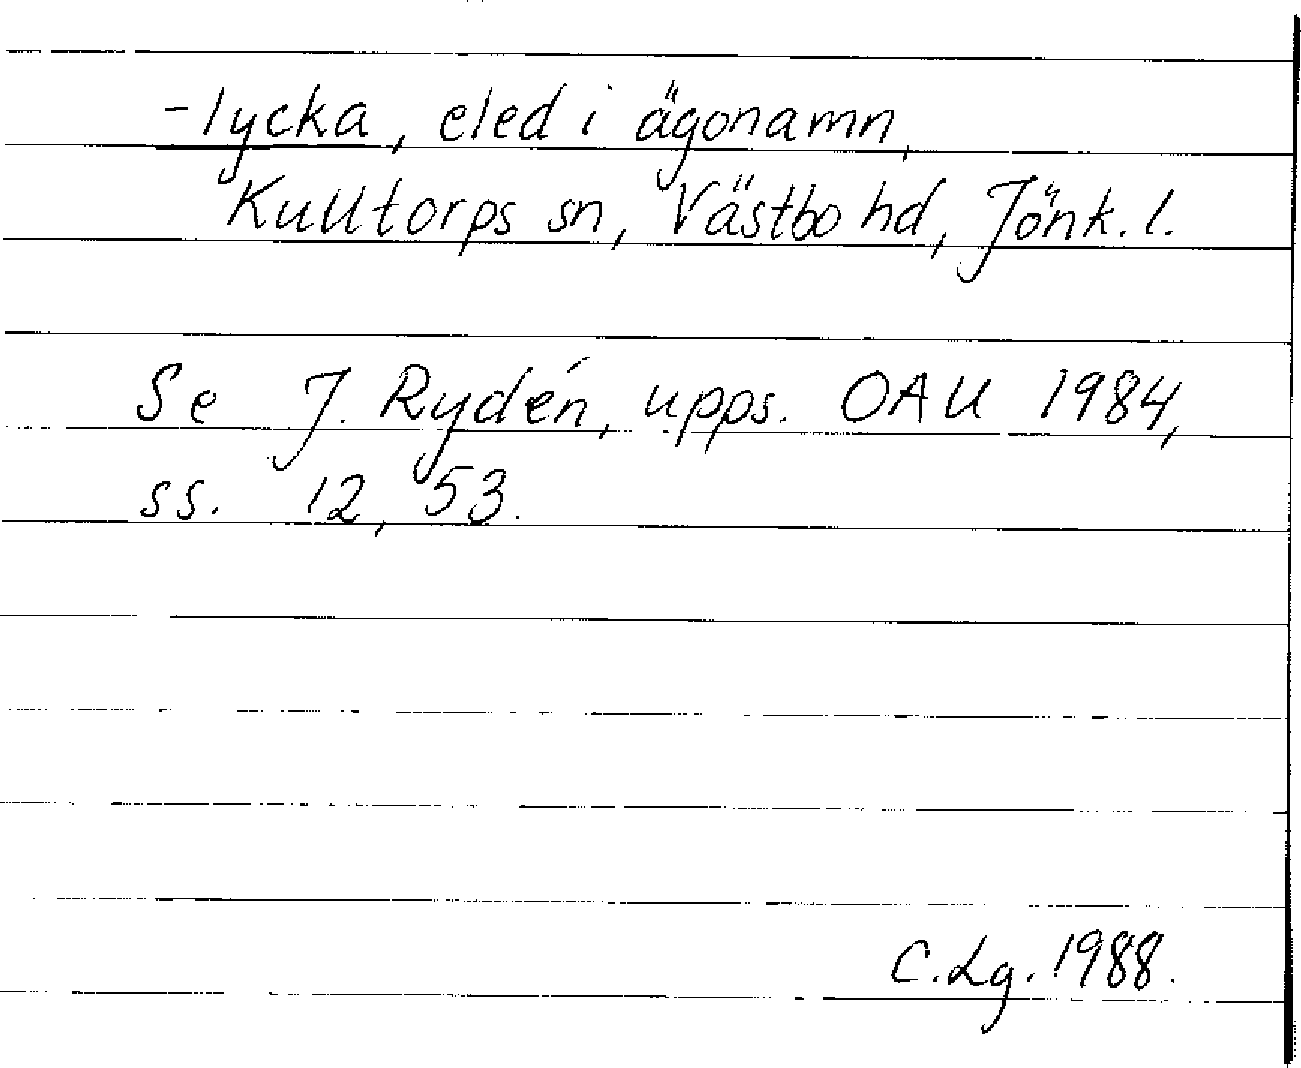 -lycka, eled i ägonamn,
Kulltorps sn, Västbo hd, Jönk. l.
Se J. Rydén, upps. OAU 1984,
ss. 12, 53.
C. Lg. 1988.